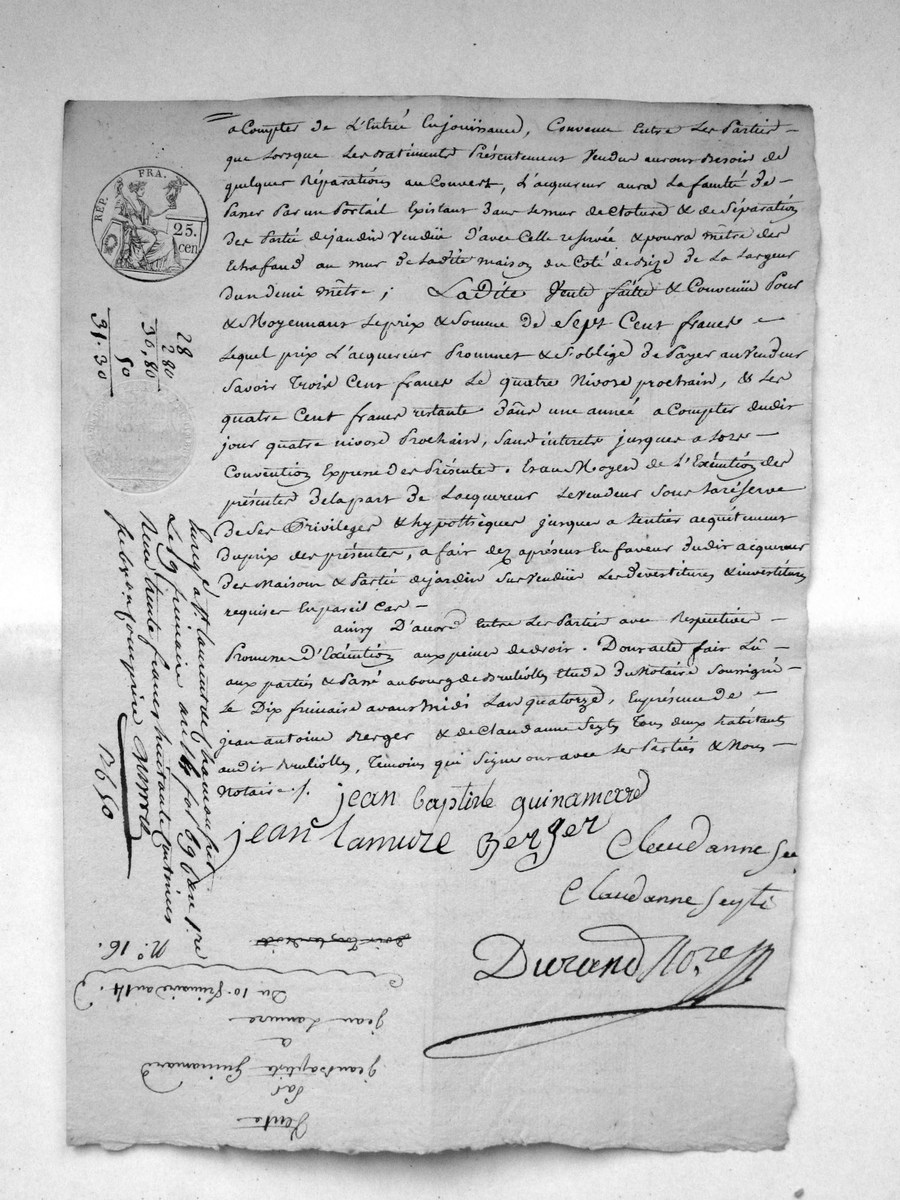 a Compter de L'Entrée En jouissance, Convenu Entre Les Parties
que Lorsque Les Batiments Présentement Vendus auront Besoin de
quelques Réparations au Couvert, L'acquereur aura La faculté de
Passer Par un Portail Existant dans Le mur de Cloture & de Séparation
des Partie de jardin Vendüe D'avec Celle reservée & poura mêtre des
Echafaud au mur de Ladite maison du Coté de Bize de La Largeur
d'un demi mêtre ; Ladite Vente faitte & Convenüe Pour
& Moyennant Le prix & Somme de Sept Cent francs
Lequel prix L'acquereur Prommet & s'oblige de Payer au Vendeur
Savoir Trois Cent francs Le quatre Nivose prochain, & Les
quatre Cent francs restante dans une année a Compter dudit
jour quatre nivose Prochain, Sans interets jusques a Lors
Convention Expresse des Présentes. Et au Moyen de L'Exécution des
présentes de la part de Lacquereur Le vendeur Sous La réserve
de Ses Privileges & hypothèques jusques a Lentier acquitement
du prix des présentes, a fait dez apresent En faveur dudit acquereur
des Maison & Partie de jardin Sus Vendüe Les devestitures & investitures
requises En pareil Cas
ainsy D'accord Entre Les Parties avec Respectives
Promesse D'Exécution aux peines de droit. Dont acte fait Lû
aux parties & Passé au bourg de Brulliolles Etude du Notaire Soussigné
Le Dix frimaire avant Midi L'an quatorze, En présence de
jean antoine Berger & de Claudanne Seyts Tous deux habitants
audit Brulliolles, Témoins qui Signeront avec Les Parties & Nous
Notaire ./.
jean baptiste guinamard
jean Lamure Berger
Claudanne Se
Claudanne Seyti
Durand Nore
REP. FRA.
25.
cen
28
2.80
30,80
50
31.30
Enregé a St Laurent de Chamousset
Le 19 frimaire an 14 fol 69
Reçu trente francs huitante Centimes
N.° 16.
Vente
Par
jean Lamure
a
jean Baptiste Guinamard
Du 10. frimaire an 14.